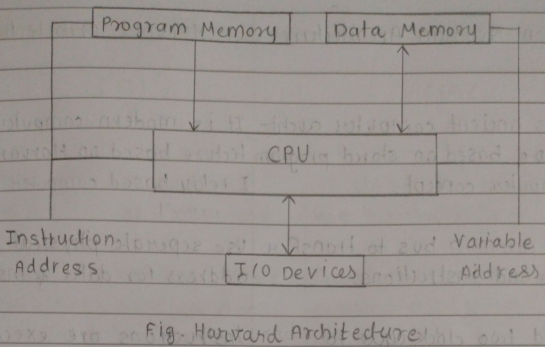 Program Memory
Data Memory
CPU
Instruction
Address
Variable
Address
I/O Devices
Fig. Harvard Architecture